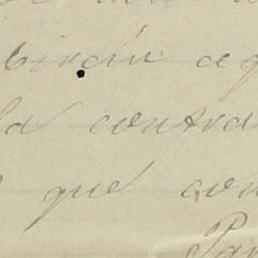 birán aq
la contra
que con
Par